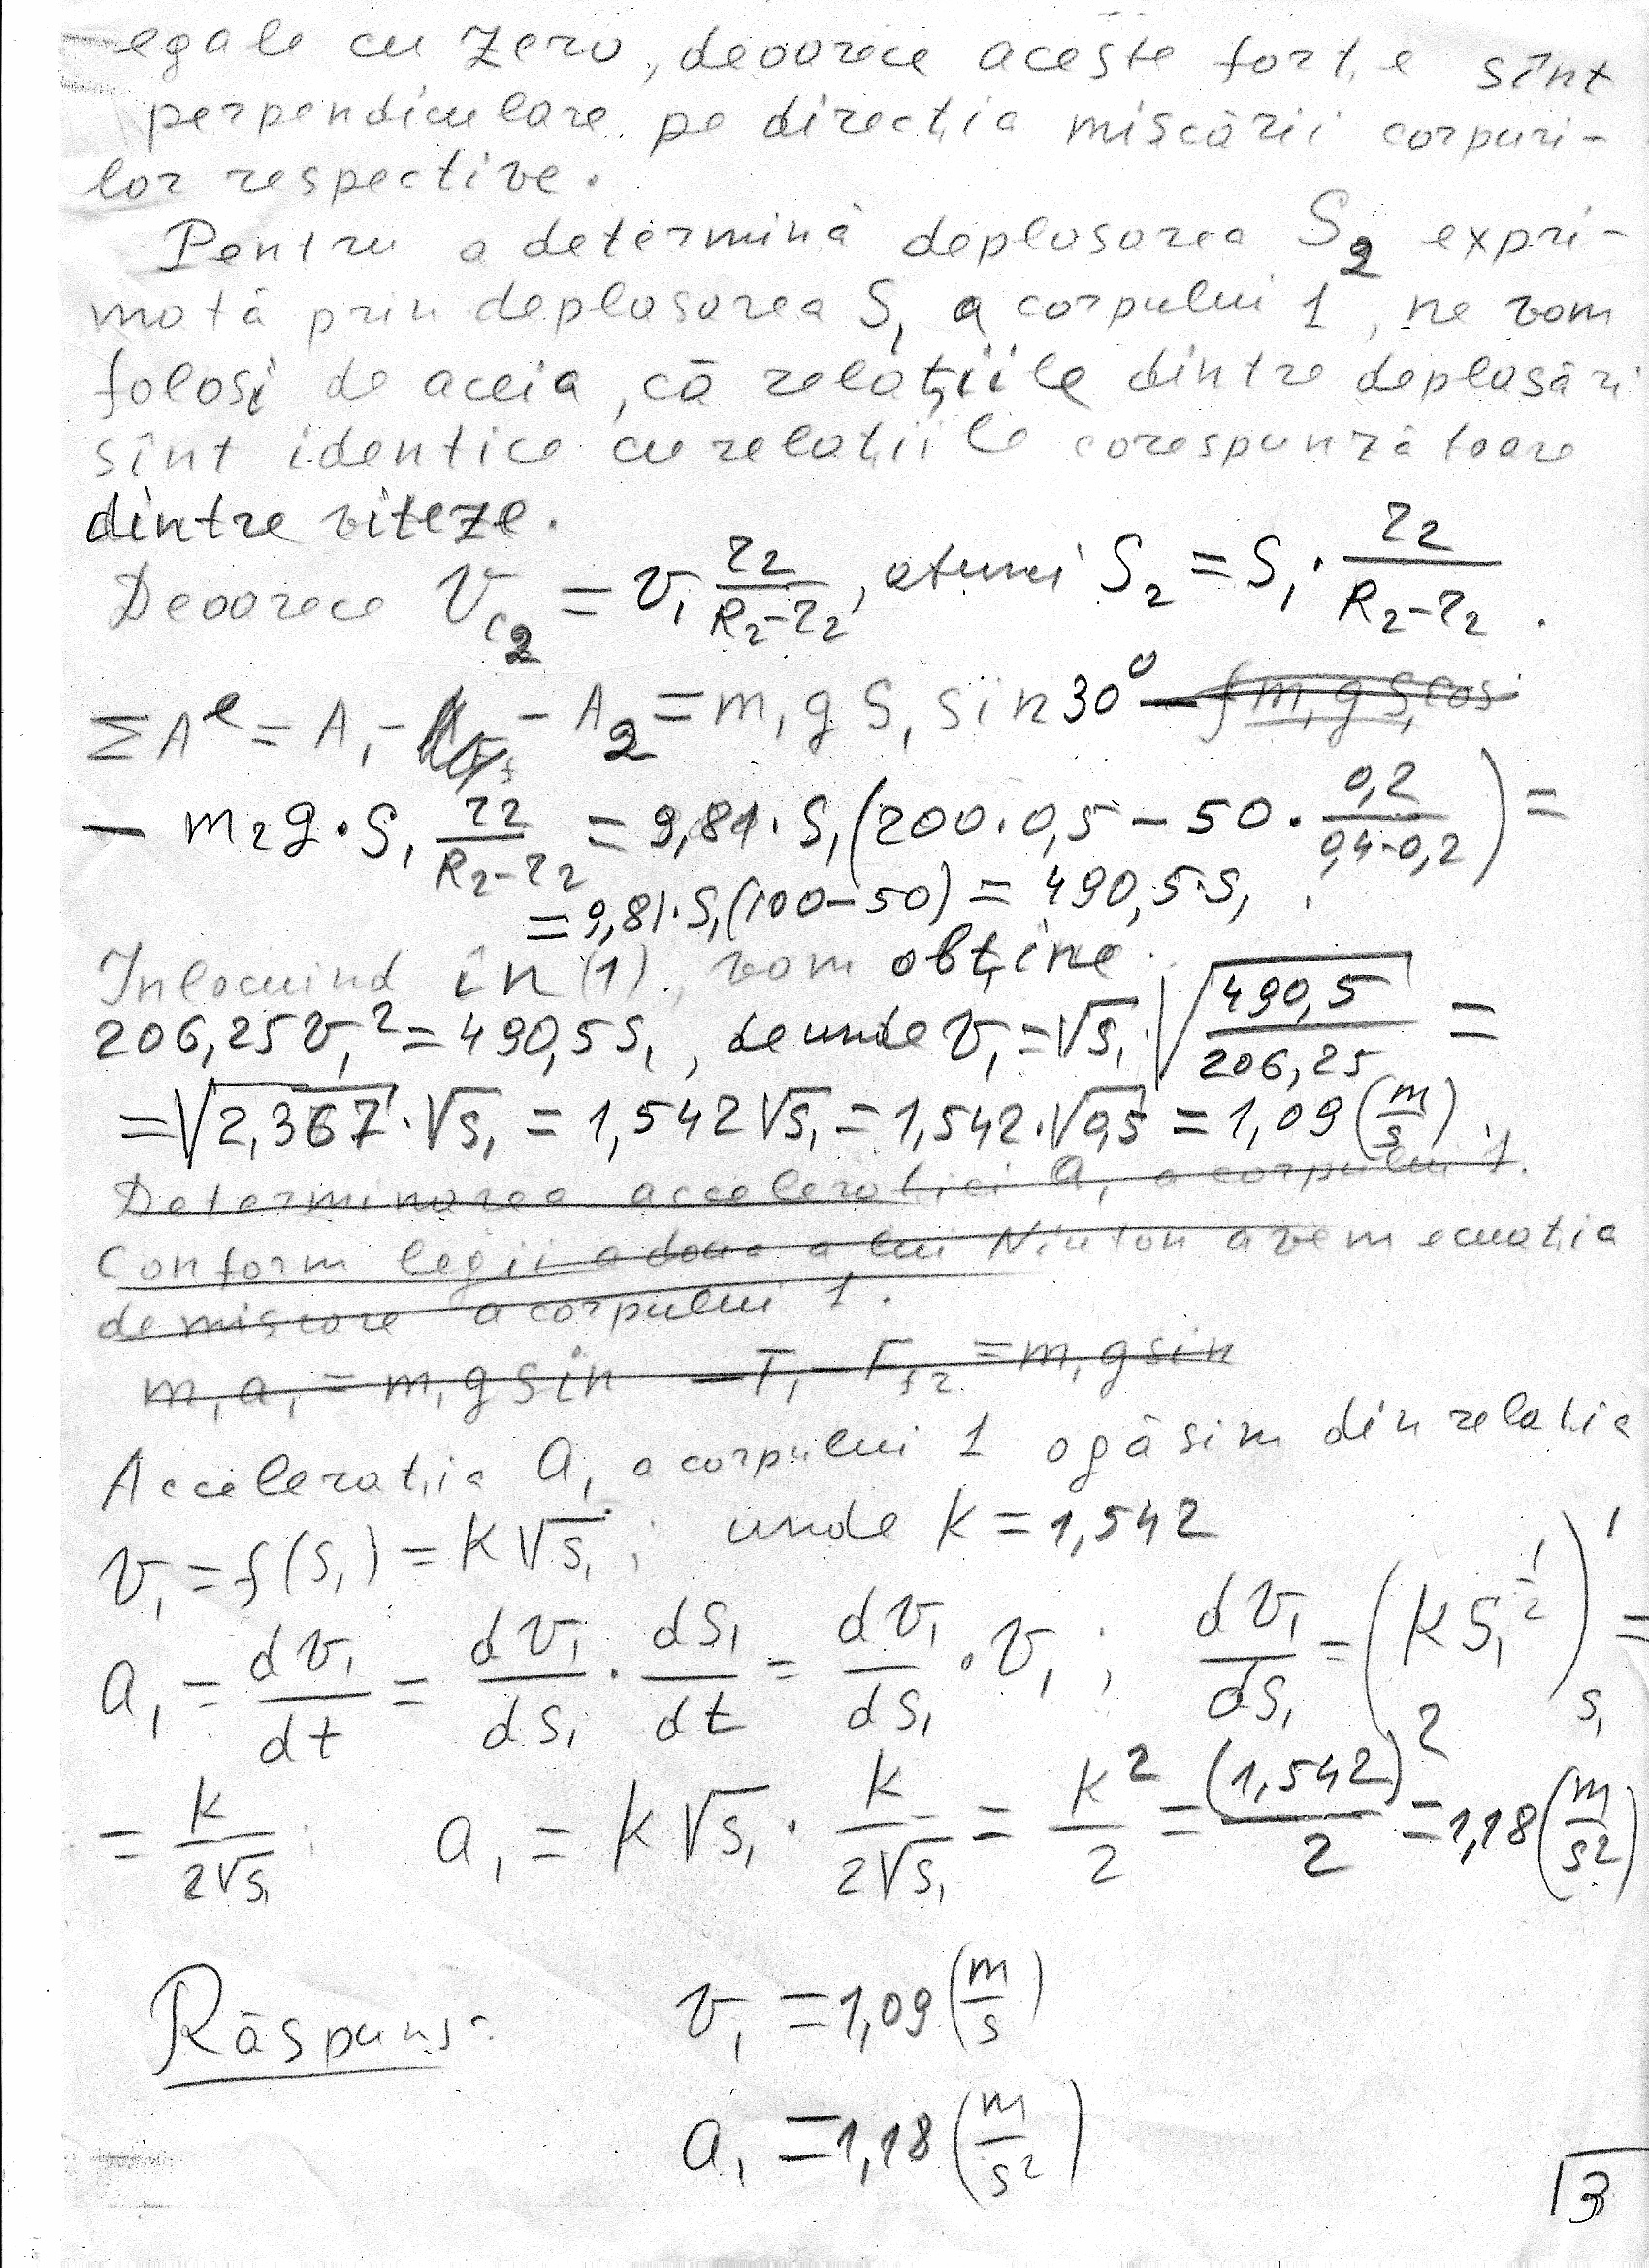 egale cu zero, deoarece aceste forțe sînt
perpendiculare pe direcția mișcării corpuri-
lor respective.
Pentru a determina deplasarea S₂ expri-
mată prin deplasarea S₁ a corpului 1, ne vom
folosi de aceia, că relațiile dintre deplasări
sînt identice cu relațiile corespunzătoare
dintre viteze.
Deoarece V_C₂ = v₁ r₂/(R₂-r₂), atunci S₂ = S₁ · r₂/(R₂-r₂).
ΣAᵉ = A₁ - - A₂ = m₁gS₁ sin30° - fm₁gS₁cos
- m₂g·S₁ r₂/(R₂-r₂) = 9,81·S₁(200·0,5 - 50·0,2/(0,4-0,2)) =
= 9,81·S₁(100-50) = 490,5·S₁.
Inlocuind în (1), vom obține.
206,25v₁² = 490,5S₁, de unde v₁ = √S₁·√(490,5/206,25) =
= √2,367·√S₁ = 1,542√S₁ = 1,542·√0,5 = 1,09 (m/s).
Determinarea accelerației a₁ a corpului 1.
Conform legii a doua a lui Niuton avem ecuația
de miscare a corpului 1.
m₁a₁ = m₁g sin - T₁ - F_f₂ = m₁g sin
Accelerația a₁ a corpului 1 o găsim din relația
v₁ = f(S₁) = K√S₁; unde K = 1,542
a₁ = dv₁/dt = dv₁/dS₁ · dS₁/dt = dv₁/dS₁ · v₁; dv₁/dS₁ = (KS₁^½)'_S₁ =
= K/(2√S₁) a₁ = K√S₁ · K/(2√S₁) = K²/2 = (1,542)²/2 = 1,18 (m/s²)
Răspuns: v₁ = 1,09 (m/s)
a₁ = 1,18 (m/s²)
3